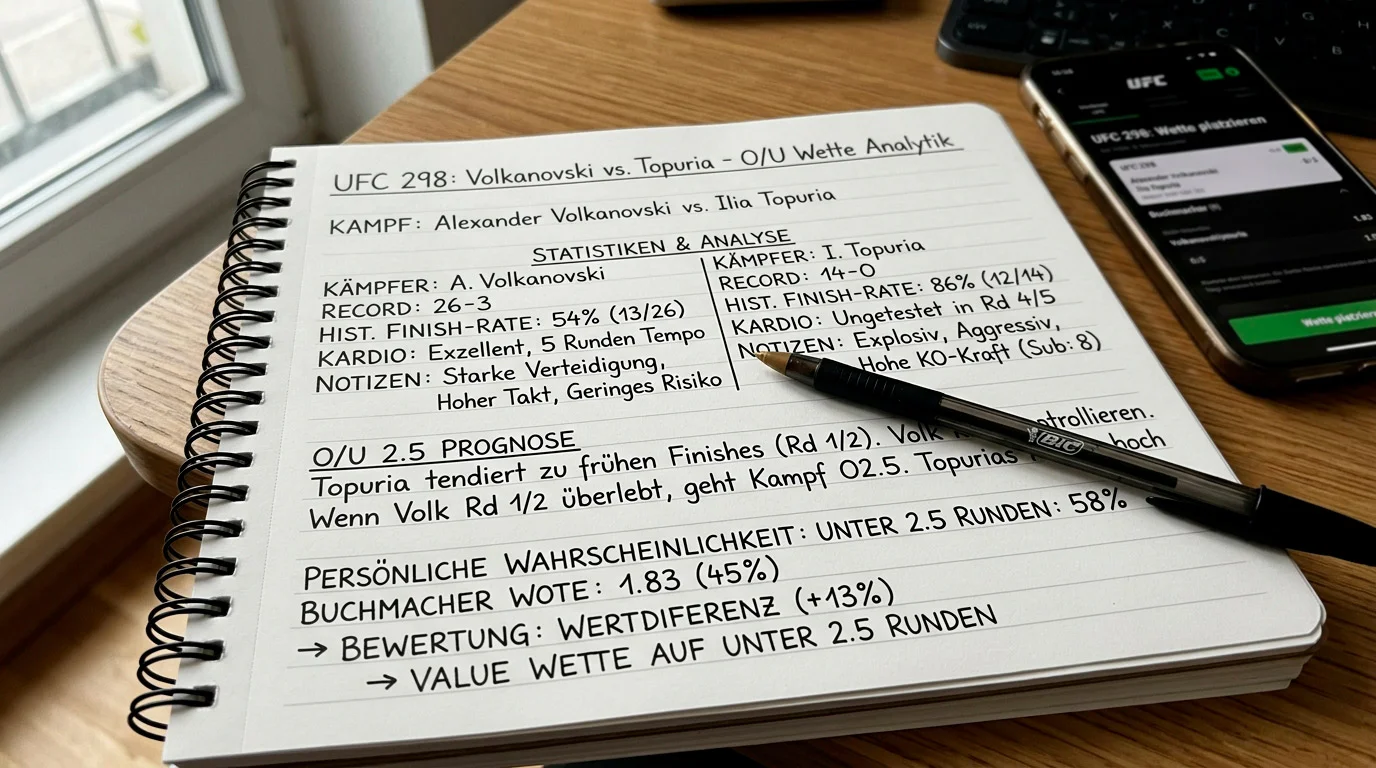 UFC 298: Volkanovski vs. Topuria - O/U Wette Analytik
KAMPF: Alexander Volkanovski vs. Ilia Topuria
STATISTIKEN & ANALYSE
KÄMPFER: A. Volkanovski
RECORD: 26-3
HIST. FINISH-RATE: 54% (13/26)
KARDIO: Exzellent, 5 Runden Tempo
NOTIZEN: Starke Verteidigung,
Hoher Takt, Geringes Risiko
KÄMPFER: I. Topuria
RECORD: 14-0
HIST. FINISH-RATE: 86% (12/14)
KARDIO: Ungetestet in Rd 4/5
NOTIZEN: Explosiv, Aggressiv,
Hohe KO-Kraft (Sub: 8)
O/U 2.5 PROGNOSE
Topuria tendiert zu frühen Finishes (Rd 1/2). Volk
Wenn Volk Rd 1/2 überlebt, geht Kampf O2.5. Topurias hoch
PERSÖNLICHE WAHRSCHEINLICHKEIT: UNTER 2.5 RUNDEN: 58%
BUCHMACHER WOTE: 1.83 (45%)
→ BEWERTUNG: WERTDIFERENZ (+13%)
→ VALUE WETTE AUF UNTER 2.5 RUNDEN
BIC
UFC
UFC 298: Wette platzieren
UFC 298
Alexander
Buchmacher
1.83
Wette platzieren